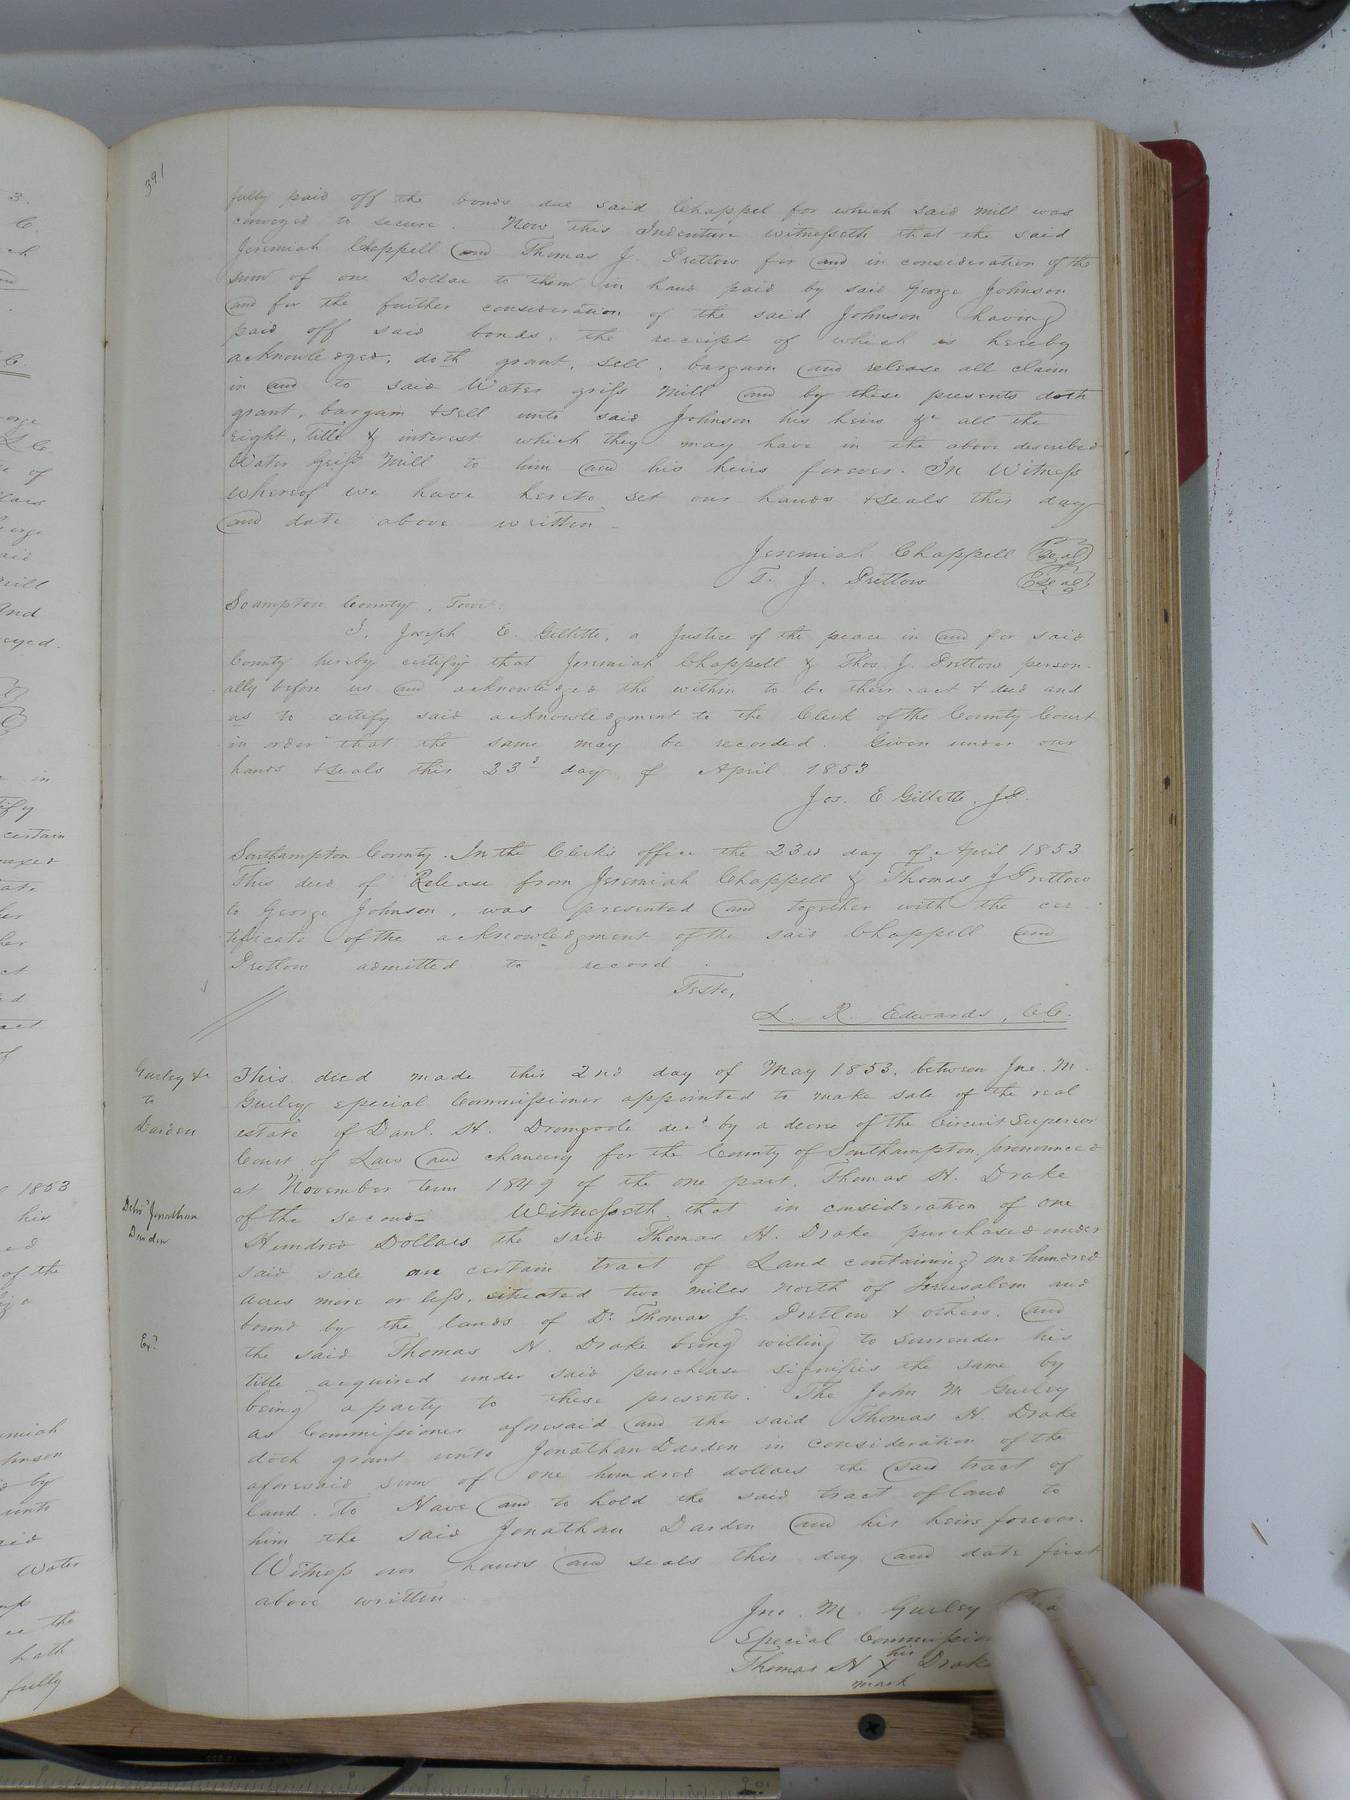 391
fully paid off the bonds due said Chappel for which said mill was
conveyed to secure. Now this Indenture witnesseth that the said
Jeremiah Chappell and Thomas J. Pretlow for and in consideration of the
sum of one Dollar to them in hand paid by said George Johnson
and for the further consideration of the said Johnson having
paid off said bonds, the receipt of which is hereby
acknowledged, doth grant, sell, bargain and release all claim
in and to said Water grist Mill and by these presents doth
grant, bargain & sell unto said Johnson his heirs &c all the
right, title & interest which they may have in the above described
Water Grist Mill to him and his heirs forever. In Witness
whereof we have hereto set our hands & seals this day
and date above written.
Jeremiah Chappell Seal
T. J. Pretlow Seal
Soampton County, Towit:
I, Joseph E. Gillette, a Justice of the peace in and for said
County hereby certify that Jeremiah Chappell & Thos J Pretlow person-
ally before us and acknowledged the within to be their act & deed and
us to certify said acknowledgment to the Clerk of the County Court
in order that the same may be recorded. Given under our
hands & seals this 23d day of April 1853
Jos. E Gillette. J.P.
Southampton County. In the Clerk's office the 23rd day of April 1853
This deed of Release from Jeremiah Chappell & Thomas J Pretlow
to George Johnson, was presented and together with the cer-
tificate of the acknowledgment of the said Chappell and
Pretlow admitted to record.
Teste,
L. R. Edwards, C.C.
Gurley &c
to
Darden
Delivd Jonathan
Darden
Exd
This deed made this 2nd day of May 1853, between Jno. M.
Gurley special Commissioner appointed to make sale of the real
estate of Danl. H. Dromgoole decd by a decree of the Circuit Superior
Court of Law and chancery for the County of Southampton, pronounced
at November term 1849 of the one part, Thomas H. Drake
of the second. Witnesseth that in consideration of one
Hundred Dollars the said Thomas H. Drake purchased under
said sale one certain tract of Land containing one hundred
acres more or less, situated two miles north of Jerusalem and
bound by the lands of Dr Thomas J. Pretlow & others. And
the said Thomas H. Drake being willing to surrender his
title acquired under said purchase signifies the same by
being a party to these presents. The John M Gurley
as Commissioner aforesaid and the said Thomas H. Drake
doth grant unto Jonathan Darden in consideration of the
aforesaid sum of one hundred dollars the said tract of
land. To Have and to hold the said tract of land to
him the said Jonathan Darden and his heirs forever.
Witness our hands and seals this day and date first
above written.
Jno. M. Gurley
Special Commission
Thomas H his X mark Drake